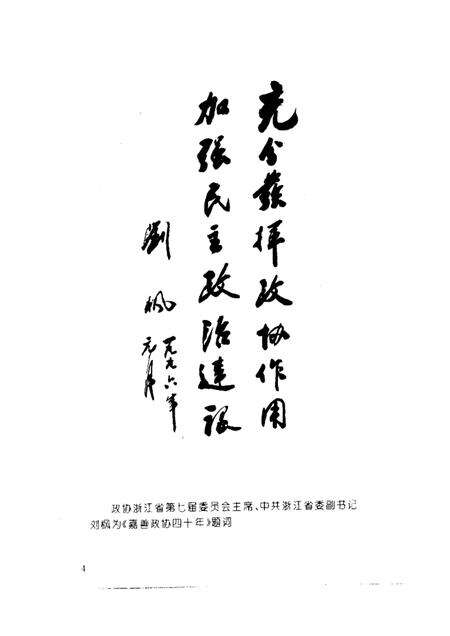 充分發揮政协作用
加强民主政治建设
劉枫
一九九六年
元月
政协浙江省第七届委员会主席、中共浙江省委副书记
刘枫为《嘉善政协四十年》题词
4